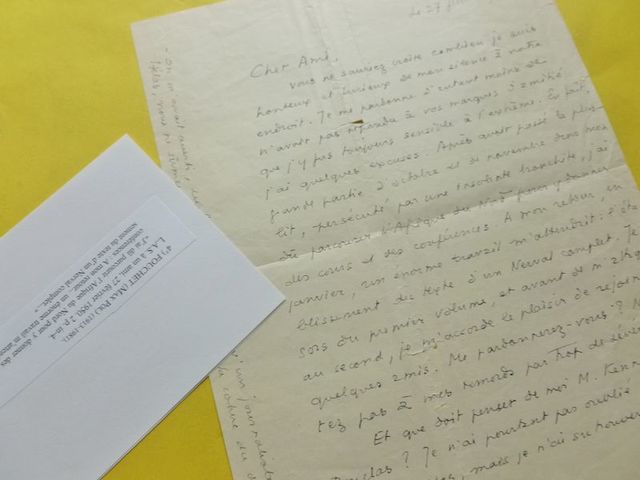 Le 27
Cher Ami,
vous ne sauriez croire combien je suis
honteux et furieux de mon silence à votre
endroit. Je me pardonne d'autant moins de
n'avoir pas répondu à vos marques d'amitié
que j'y suis toujours sensible à l'extrême. En fait,
j'ai quelques excuses. Après avoir passé la plus
grande partie d'octobre et de novembre dans mon
lit, persécuté par une insolente bronchite, j'ai
dû parcourir l'Afrique du Nord pour y donner
des cours et des conférences. A mon retour, en
janvier, un énorme travail m'attendait : l'éta-
blissement du texte d'un Nerval complet. Je
sors du premier volume, et avant de m'attaquer
au second, je m'accorde le plaisir de rejoindre
quelques amis. Me pardonnerez-vous ?
tez pas à mes remords par trop de
Et que doit penser de moi M.
Douglas ? Je n'ai pourtant pas oublié
mais je n'ai su trouver
- On m'avait
d'un journaliste
4°) FOUCHET Max Pol (1913-1981).
L.A.S. à un ami, 27 février 1950, 2 p. in-4.
"J'ai dû parcourir l'Afrique du Nord pour y donner des
conférences. A mon retour, un énorme travail m'atten
sement du texte d'un Nerval complet..."